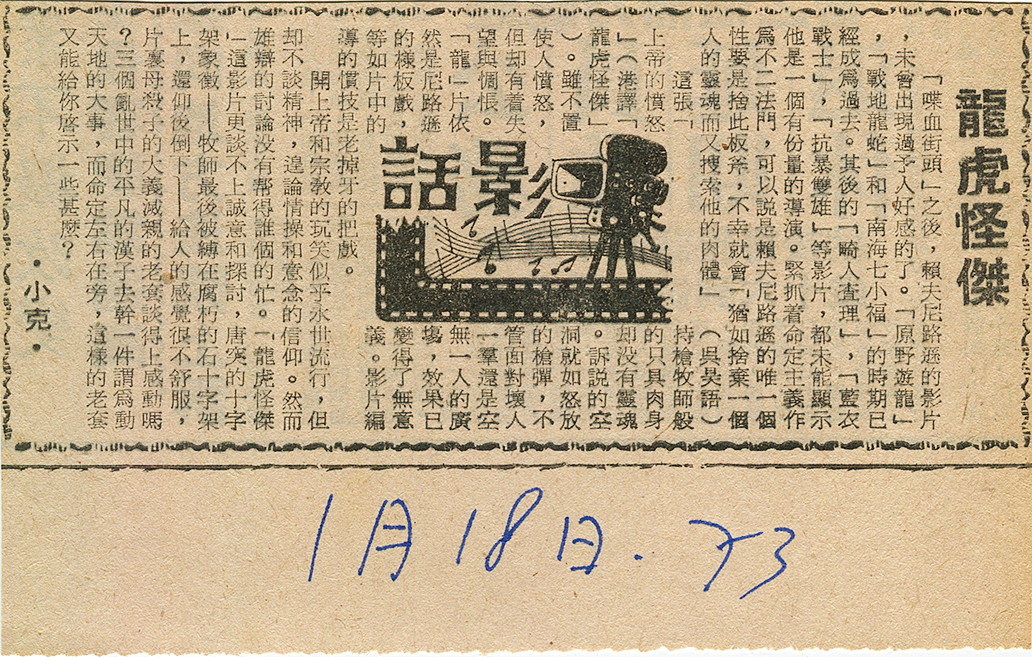 龍虎怪傑
「喋血街頭」之後,賴夫尼路遜的影片
,未曾出現過予人好感的了。「原野遊龍」
,「戰地龍蛇」和「南海七小福」的時期已
經成為過去。其後的「畸人査理」,「藍衣
戰士」,「抗暴雙雄」等影片,都未能顯示
他是一個有份量的導演。緊抓着命定主義作
為不二法門,可以說是賴夫尼路遜的唯一個
性要是捨此板斧,不幸就會「猶如捨棄一個
人的靈魂而又搜索他的肉體」(吳昊語)
這張「
上帝的憤怒
」(港譯「
龍虎怪傑」
)。雖不置
使人憤怒,
但却有着失
望與惆悵。
「龍」片依
然是尼路遜
的樣板戲,
等如片中的
影話
持槍牧師般
的只具肉身
却沒有靈魂
。訴說的空
洞就如怒放
的槍彈,不
管面對壞人
一羣還是空
無一人的廣
塲,效果已
變得了無意
義。影片編
導的慣技是老掉牙的把戲。
開上帝和宗教的玩笑似乎永世流行,但
却不談精神,遑論情操和意念的信仰。然而
雄辯的討論沒有幫得誰個的忙。「龍虎怪傑
」這影片更談不上誠意和探討,唐突的十字
架象徵——牧師最後被縛在腐朽的石十字架
上,還仰後倒下——給人的感覺很不舒服,
片裏母殺子的大義滅親的老套談得上感動嗎
?三個亂世中的平凡的漢子去幹一件謂為動
天地的大事,而命定左右在旁,這樣的老套
又能給你啓示一些甚麼?
•小克•
1月18日.73